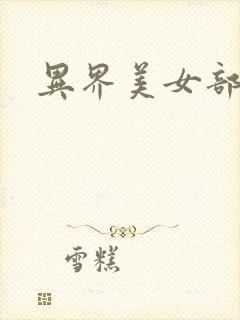 異界美女部
雪糕